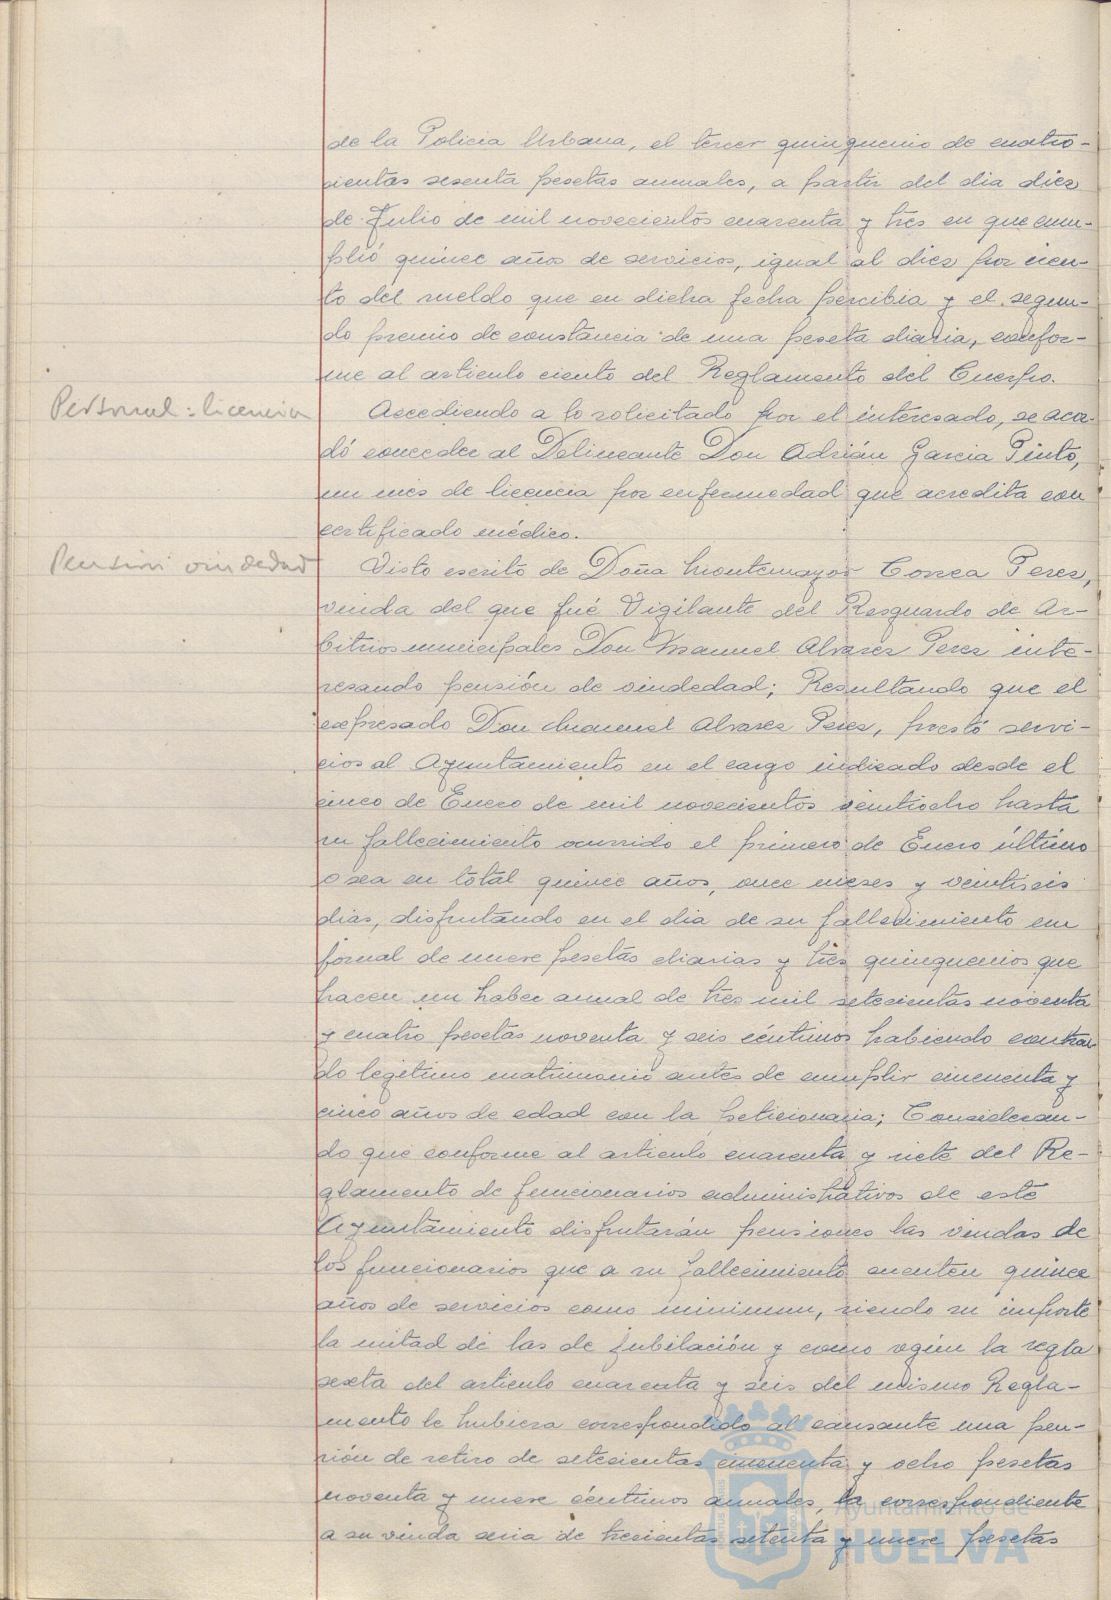 de la Policia Urbana, el tercer quinquenio de cuatro-
cientas sesenta pesetas anuales, a partir del dia diez
de Julio de mil novecientos cuarenta y tres en que cum-
plió quince años de servicios, igual al diez por cien-
to del sueldo que en dicha fecha percibia y el segun-
do premio de constancia de una peseta diaria, confor-
me al articulo ciento del Reglamento del Cuerpo.
Personal: licencia
Accediendo a lo solicitado por el interesado, se acor-
dó conceder al Delineante Don Adrián Garcia Pinto,
un mes de licencia por enfermedad que acredita con
certificado médico.
Pensión viudedad
Visto escrito de Doña Montemayor Correa Perez,
viuda del que fué Vigilante del Resguardo de Ar-
bitrios municipales Don Manuel Alvarez Perez inte-
resando pensión de viudedad; Resultando que el
expresado Don Manuel Alvarez Perez, prestó servi-
cios al Ayuntamiento en el cargo indicado desde el
cinco de Enero de mil novecientos veintiocho hasta
su fallecimiento ocurrido el primero de Enero último
o sea en total quince años, once meses y veintiseis
dias, disfrutando en el dia de su fallecimiento un
jornal de nueve pesetas diarias y tres quinquenios que
hacen un haber anual de tres mil setecientas noventa
y cuatro pesetas noventa y seis céntimos habiendo contrai-
do legitimo matrimonio antes de cumplir cincuenta y
cinco años de edad con la peticionaria; Consideran-
do que conforme al articulo cuarenta y siete del Re-
glamento de funcionarios administrativos de este
Ayuntamiento disfrutarán pensiones las viudas de
los funcionarios que a su fallecimiento cuenten quince
años de servicios como minimum, siendo su importe
la mitad de las de jubilación y como según la regla
sexta del articulo cuarenta y seis del mismo Regla-
mento le hubiera correspondido al causante una pen-
sión de retiro de setecientas cincuenta y ocho pesetas
noventa y nueve céntimos anuales, la correspondiente
a su viuda seria de trescientas setenta y nueve pesetas
Ayuntamiento de
HUELVA